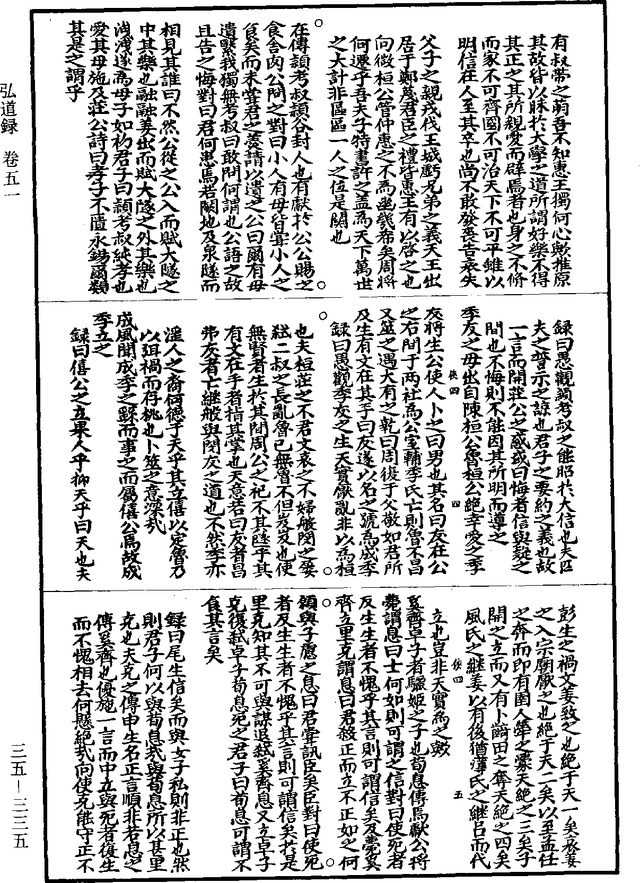 有叔帶之萌吾不知惠王獨何心歟推原
其故皆以昧於大學之道所謂好樂不得
其正之其所親愛而辟焉者也身之不脩
而家不可齊國不可治天下不可平雖以
明信在人至其卒也尚不敢發喪告哀失
父子之親戎伐王城虧兄弟之義天王出
居于鄭蔑君臣之禮皆惠王有以啓之也
向微桓公管仲惠之不為幽幾希矣周將
何遷乎吾夫子特書許之蓋為天下萬世
之大計非區區一人之位是關也
在傳潁考叔潁谷封人也有獻於公公賜之
食食舍肉公問之對曰小人有母皆嘗小人之
食矣而未嘗君之羹請以遺之公曰爾有母
遺繄我獨無考叔曰敢問何謂也公語之故
且告之悔對曰君何患焉若闕地及泉隧而
相見其誰曰不然公從之公入而賦大隧之
中其樂也融融姜出而賦大隧之外其樂也
洩洩遂為母子如初君子曰潁考叔純孝也
愛其母施及莊公詩曰孝子不匱永錫爾類
其是之謂乎
録曰愚觀潁考叔之能昭於大信也夫匹
夫之誓示之諒也君子之要約之義也故
一言而開莊公之惑或曰悔者信與疑之
間也不悔則不能因其所明而導之
季友之母出自陳桓公魯桓公絕幸愛之季
友將生公使人卜之曰男也其名曰友在公
之右間于兩社為公室輔季氏亡則魯不昌
又筮之遇大有之乾曰同復于父敬如君所
及生有文在其手曰友遂以名之號為成季
録曰愚觀季友之生天實厭亂非以為桓
也夫桓莊之不君文哀之不婦般閔之嬰
弒二叔之長亂魯已無魯不但岌岌也使
無賢者生於其間周公之祀不其墜乎其
有文在手者指其掌也天意若曰友者昌
弗友者亡繼般與閔友之道也不然季亦
滛人之裔何德于天乎其立僖以定魯乃
以弭禍而存祧也卜筮之意深哉
成風聞成季之繇而事之而屬僖公焉故成
季立之
録曰僖公之立果人乎抑天乎曰天也夫
彭生之禍文姜致之也絶于天一矣哀姜
之入宗廟厭之也絶于天二矣以至孟任
之奔而即有圉人犖之釁天絶之三矣子
開之立而又有卜齮田之奪天絶之四矣
風氏之繼姜以有後猶薄氏之繼呂而代
立也豈非天實為之歟
奚齊卓子者驪姬之子也荀息傅焉獻公將
薨謂息曰士何如則可謂之信對曰使死者
反生生者不愧乎其言則可謂信矣及薨奚
齊立里克謂息曰君殺正而立不正如之何
願與子慮之息曰君嘗訊臣矣臣對曰使死
者反生生者不愧乎其言則可謂信矣於是
里克知其不可與謀退弒奚齊息又立卓子
克復弒卓子荀息死之君子曰荀息可謂不
食其言矣
録曰尾生信矣而與女子私則非正也然
則君子何以與荀息哉與荀息所以甚里
克也夫克之傅申生名正言順非若息之
傅奚齊也優施一言而中立與死者復生
而不愧相去何懸絶哉向使克能守正不
佚四 四
佚四 五
弘道録 卷五一
三五—三三五